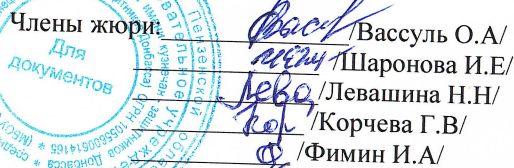 Члены жюри: /Вассуль О.А/
/Шаронова И.Е/
/Левашина Н.Н/
/Корчева Г.В/
/Фимин И.А/
Для
документов